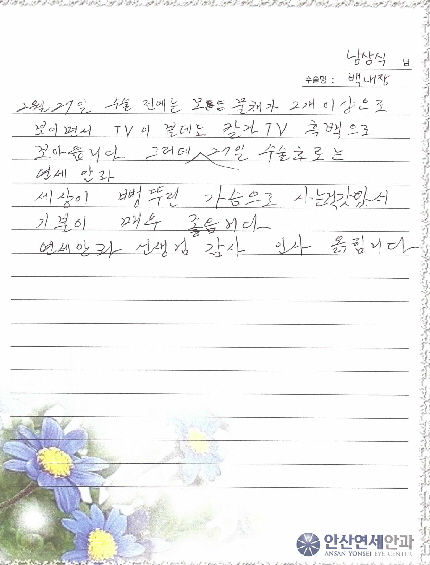 님상식 님
수술명: 백내장
2월 27일 수술 전에는 모든 물체가 2개 이상으로
보이면서 TV 칼라 TV 흑백으로
보아읍니다 그러데 27일 수술후로는
연세 안과
세상이 뻥뚜린 가슴으로 사는것같아서
기분이 매우 좋습니다
연세안과 선생님 감사 인사 올립니다
안산연세안과
ANSAN YONSEI EYE CENTER